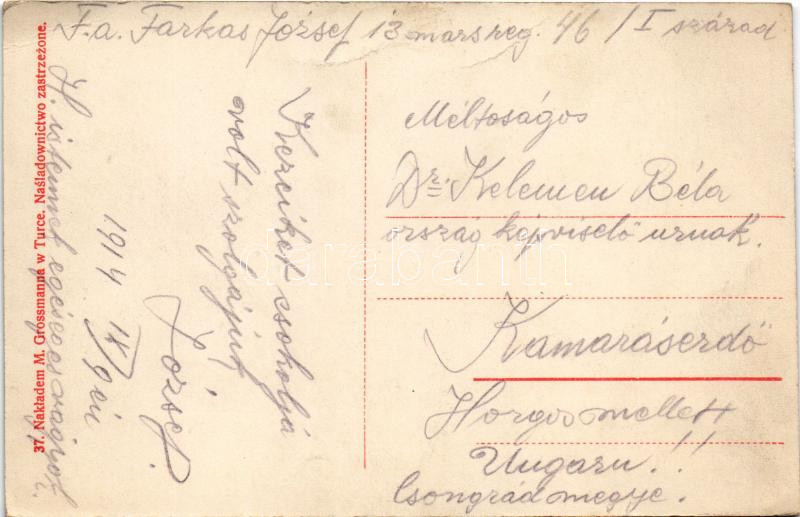 F.a. Farkas József 13 marsreg. 46/I század
Méltoságos
Dr. Kelemen Béla
ország képviselő urnak.
Kamaráserdő
Horgos mellett
Ungarn!!
Csongrád megye.
Kezeiket csokolja
volt szolgájuk
József.
1914 IX/9én
37. Nakładem M. Grossmanna w Turce. Naśladownictwo zastrzeżone.
darabanth